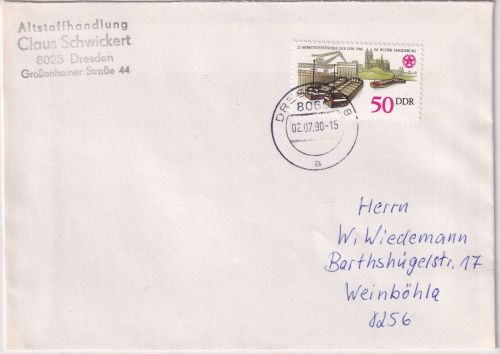 Altstoffhandlung
Claus Schwickert
8023 Dresden
Großenhainer Straße 44
21. ARBEITERFESTSPIELE DER DDR 1986 IM BEZIRK MAGDEBURG
50 DDR
DRESDEN 8
8060
02.07.90-15
a
Herrn
W. Wiedemann
Barthshügelstr. 17
Weinböhla
8256